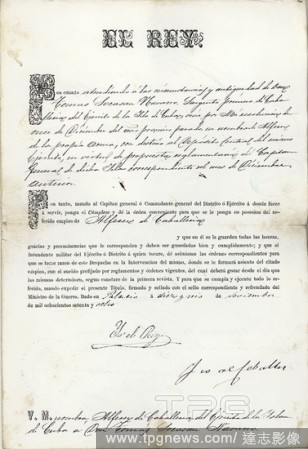 EL REY.
Por cuanto atendiendo a las circunstancias y antigüedad de Don
Tomas Navarro, Sargento primero de Caba
llería del Ejército de la Isla de Cuba, vine por Mi resolucion de
once de Diciembre del año próximo pasado en nombrarle Alferez
de la propia arma, con destino al del mismo
Ejército, en virtud de propuesta reglamentaria del Capitan
General de dicha Isla correspondiente al mes de Diciembre
anterior.
Por tanto, mando al Capitan general ó Comandante general del Distrito ó Ejército á donde fuere
á servir, ponga el Cúmplase y dé la órden conveniente para que se le ponga en posesion del
referido empleo de Alferez de Caballeria
y que en él se le guarden todas las honras,
gracias y preeminencias que le corresponden y deben ser guardadas bien y cumplidamente; y que el
Intendente militar del Ejército ó Distrito á quien tocare, dé asimismo las órdenes correspondientes para
que se tome razon de este Despacho en la Intervencion del mismo, donde se le formará asiento del citado
empleo, con el sueldo prefijado por reglamentos y órdenes vigentes, del cual deberá gozar desde el dia que
las mismas determinen, segun constare de la primera revista. Y para que se cumpla y ejecute todo lo refe-
rido, mando expedir el presente Título, firmado y sellado con el sello correspondiente y refrendado del
Ministro de la Guerra. Dado en Palacio á de
de mil ochocientos setenta y ocho
Yo el Rey
V. M. nombra Alferez de Caballeria del Ejército de la Isla
de Cuba a Don Tomás Navarro
TPG
達志影像